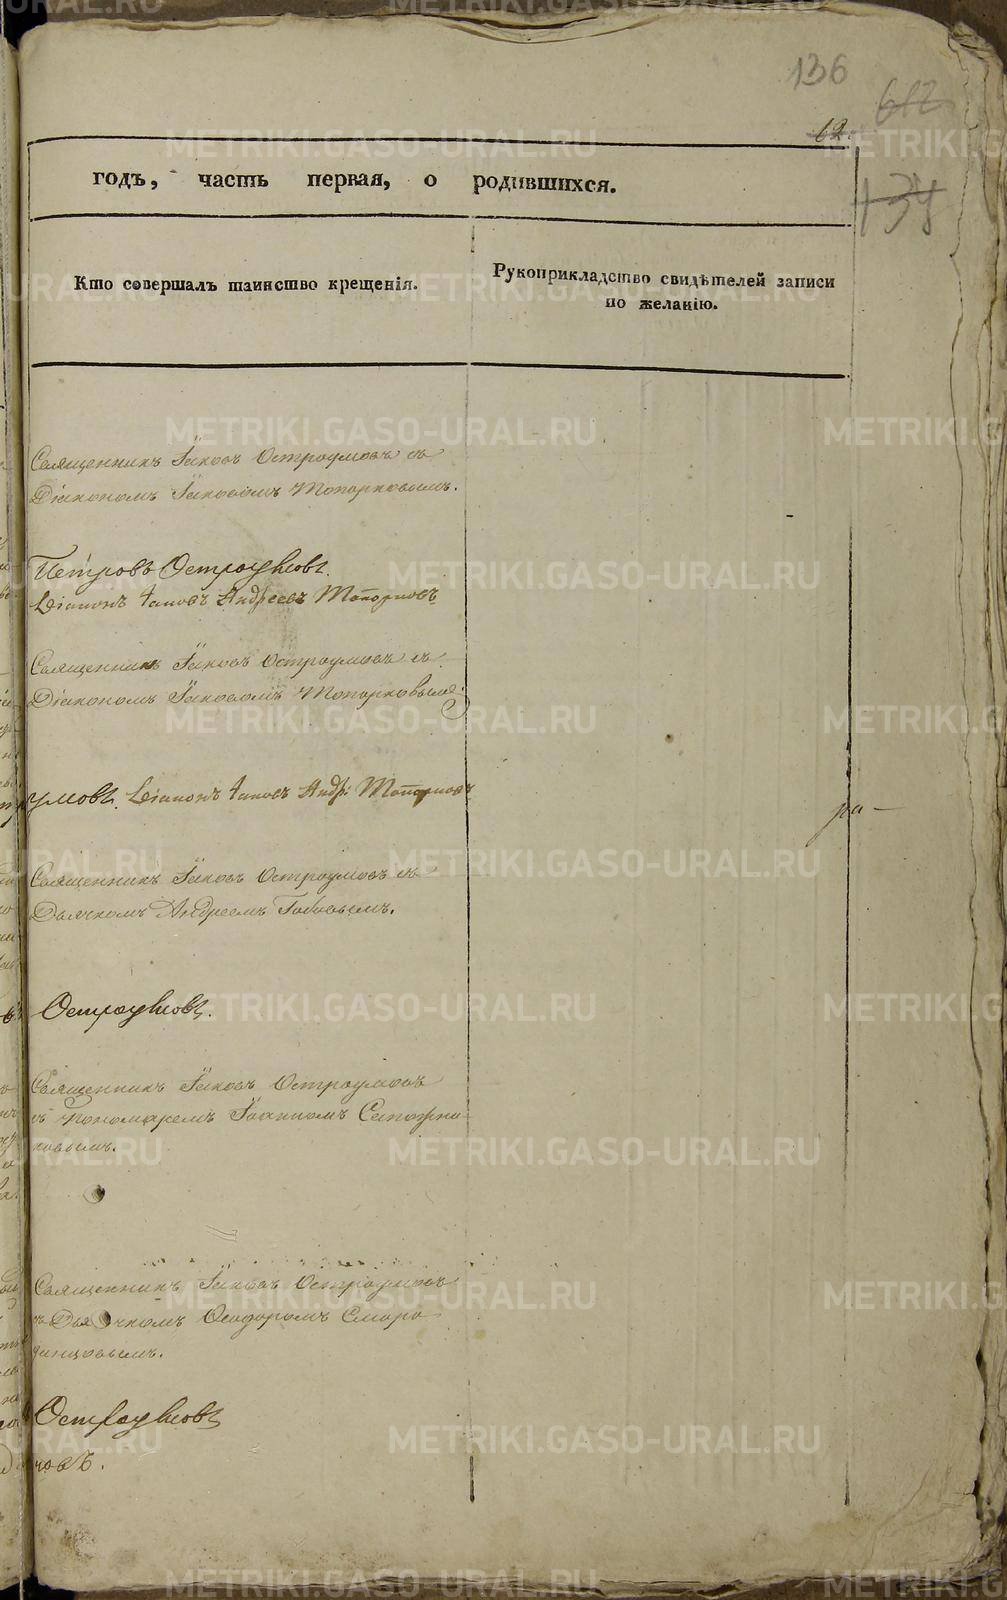 136
612
62.
134
годъ, часть первая, о родившихся.
Кто совершалъ таинство крещенія.
Рукоприкладство свидѣтелей записи
по желанію.
Священникъ Іаковъ Остроумовъ съ
Діакономъ Іаковомъ Топорковымъ.
Петровъ Остроумовъ.
Діаконъ Іаковъ Андреевъ Топорковъ
Священникъ Іаковъ Остроумовъ съ
Діакономъ Іаковомъ Топорковымъ.
умовъ. Діаконъ Іаковъ Андр: Топорковъ
ра
Священникъ Іаковъ Остроумовъ съ
Дьячкомъ Андреемъ
Остроумовъ.
Священникъ Іаковъ Остроумовъ
съ Пономаремъ Іоанномъ Сапожни-
ковымъ.
Священникъ Іаковъ Остроумовъ
съ Дьячкомъ Ѳеодоромъ Сморо
динцовымъ.
Остроумовъ
новъ.
METRIKI.GASO-URAL.RU